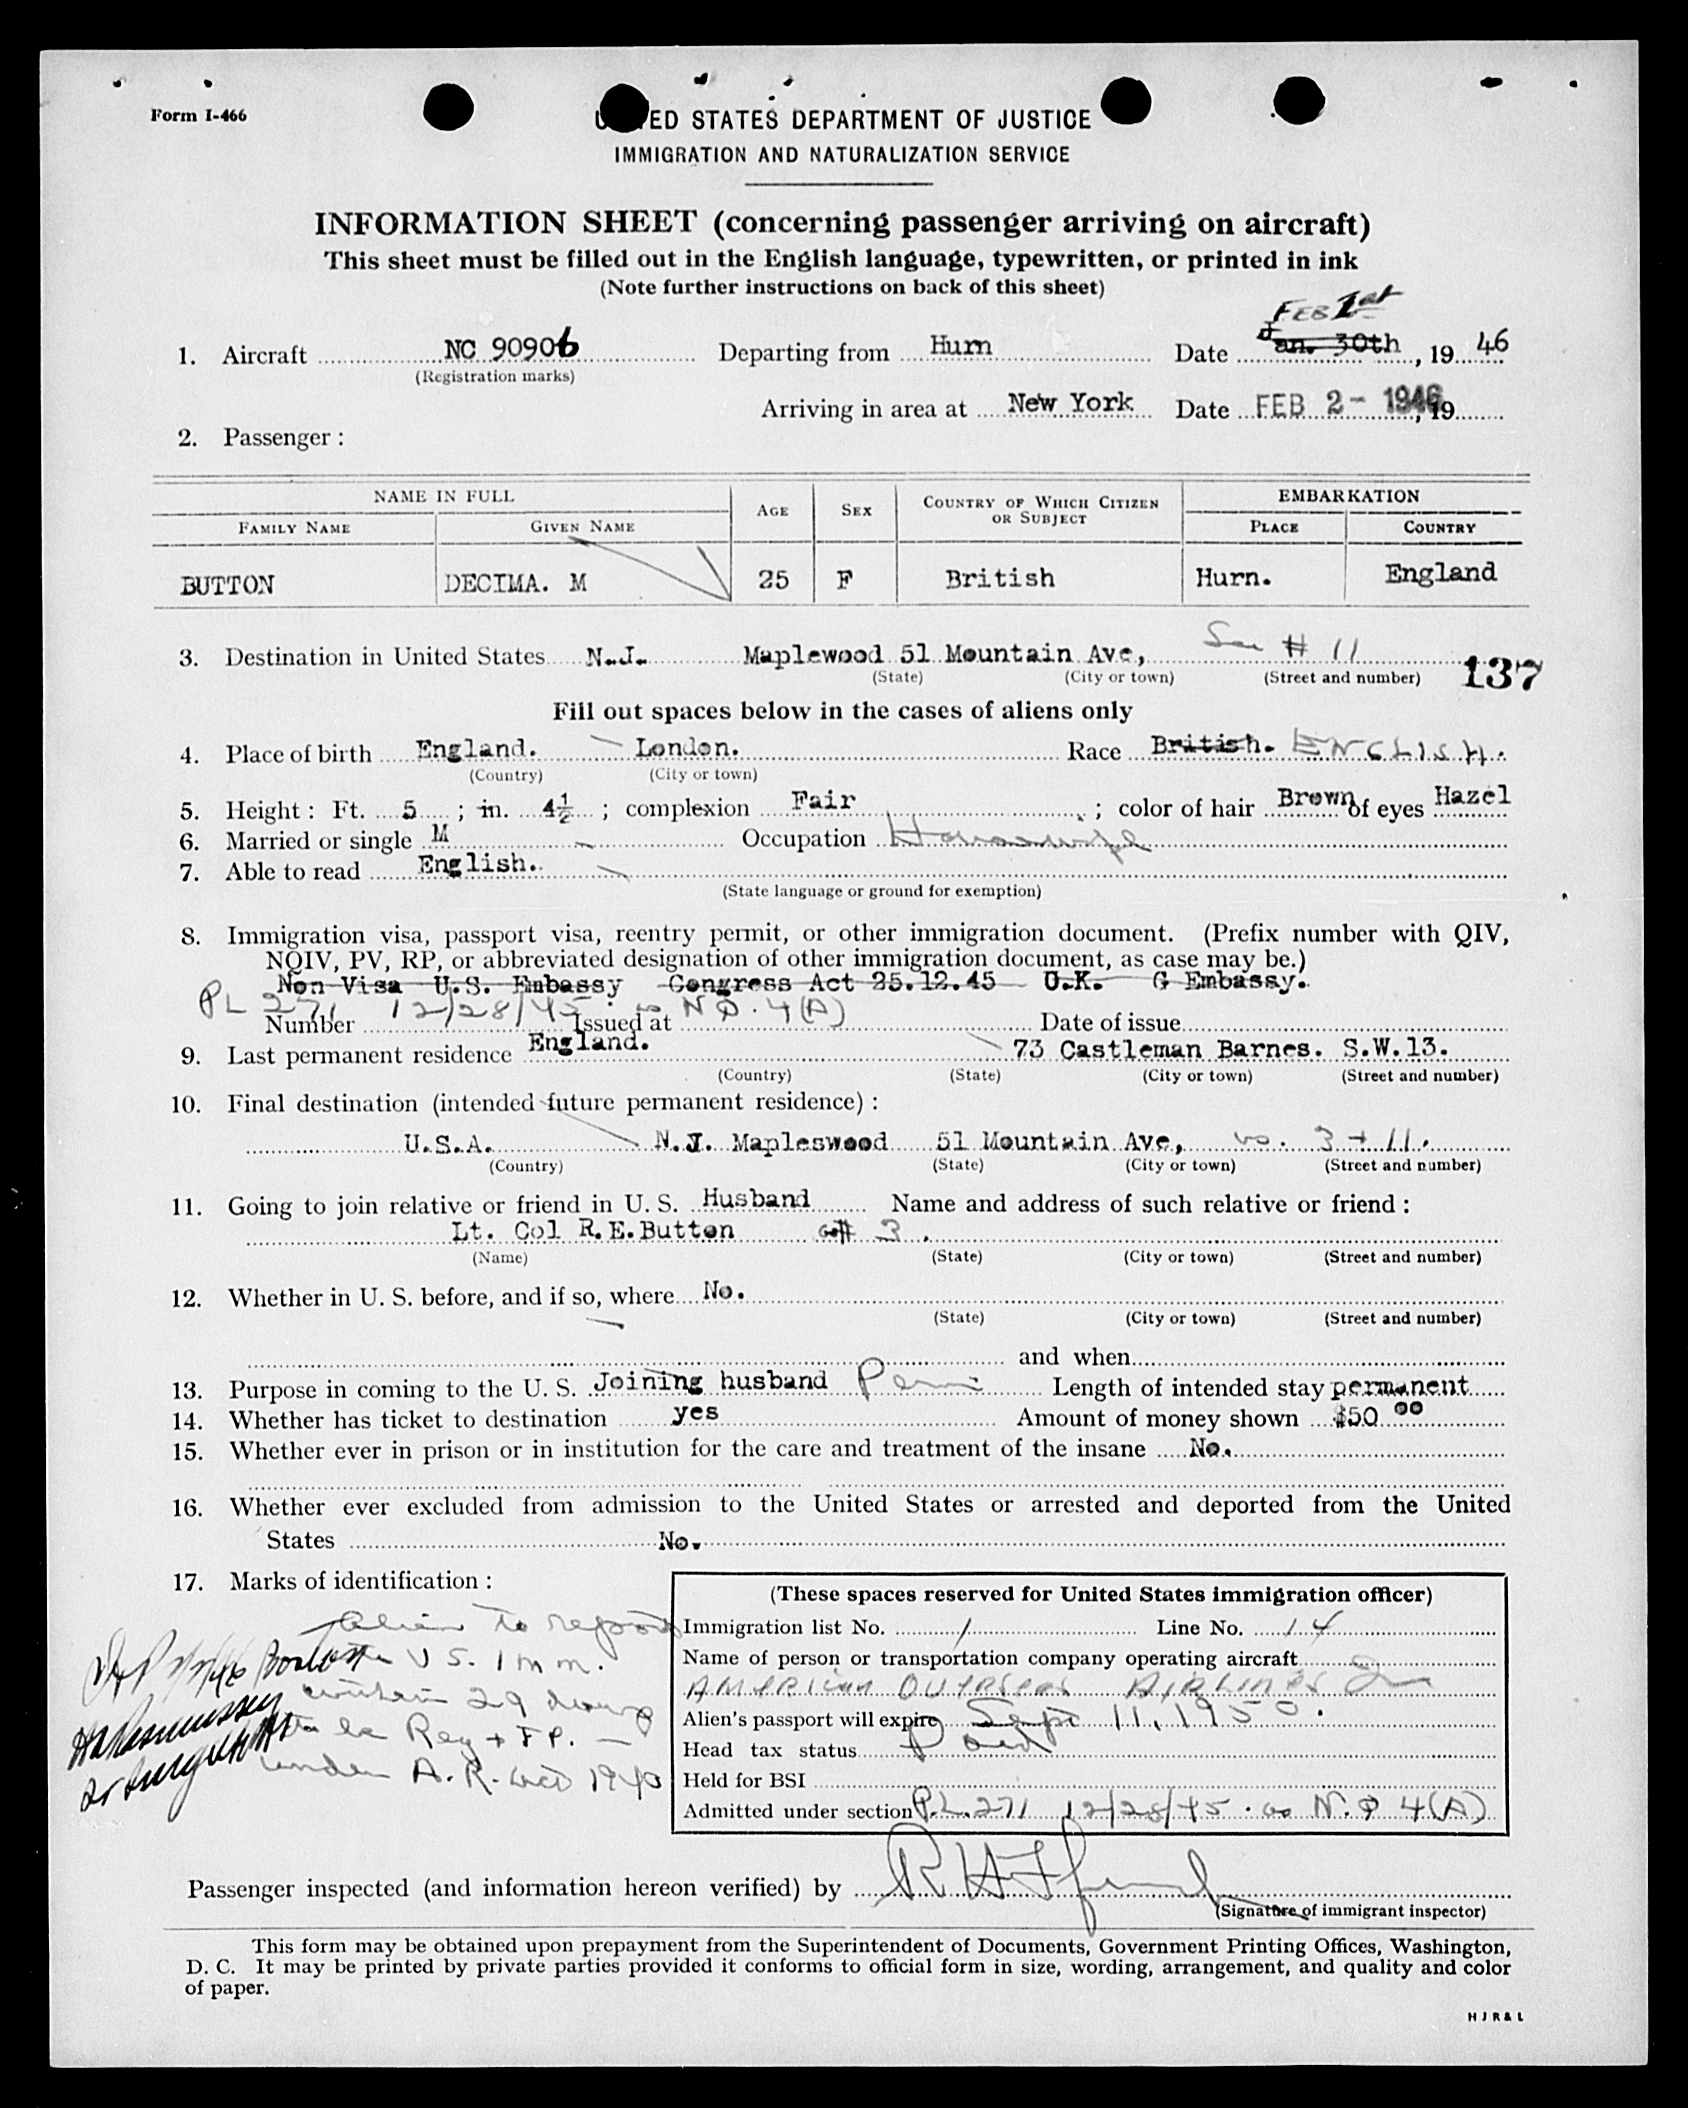 Form I-466
UNITED STATES DEPARTMENT OF JUSTICE
IMMIGRATION AND NATURALIZATION SERVICE
INFORMATION SHEET (concerning passenger arriving on aircraft)
This sheet must be filled out in the English language, typewritten, or printed in ink
(Note further instructions on back of this sheet)
FEB 1st
1. Aircraft NC 90906 Departing from Hurn Date Jan. 30th, 19 46
(Registration marks)
Arriving in area at New York Date FEB 2 - 1946, 19
2. Passenger :
NAME IN FULL AGE SEX COUNTRY OF WHICH CITIZEN OR SUBJECT EMBARKATION
FAMILY NAME GIVEN NAME PLACE COUNTRY
BUTTON DECIMA. M 25 F British Hurn. England
3. Destination in United States N.J. Maplewood 51 Mountain Ave, # 11
(State) (City or town) (Street and number) 137
Fill out spaces below in the cases of aliens only
4. Place of birth England. London. Race British. ENGLISH.
(Country) (City or town)
5. Height : Ft. 5 ; in. 4½ ; complexion Fair ; color of hair Brown of eyes Hazel
6. Married or single M Occupation Housewife
7. Able to read English.
(State language or ground for exemption)
8. Immigration visa, passport visa, reentry permit, or other immigration document. (Prefix number with QIV,
NQIV, PV, RP, or abbreviated designation of other immigration document, as case may be.)
Non-Visa U.S. Embassy Congress Act 25.12.45 U.K. G Embassy.
PL 271 12/28/45 as NQ. 4(A)
Number Issued at Date of issue
9. Last permanent residence England. 73 Castleman Barnes. S.W.13.
(Country) (State) (City or town) (Street and number)
10. Final destination (intended future permanent residence) :
U.S.A. N.J. Mapleswood 51 Mountain Ave, 3 + 11.
(Country) (State) (City or town) (Street and number)
11. Going to join relative or friend in U. S. Husband Name and address of such relative or friend :
Lt. Col R.E.Button # 3.
(Name) (State) (City or town) (Street and number)
12. Whether in U. S. before, and if so, where No.
(State) (City or town) (Street and number)
and when
13. Purpose in coming to the U. S. Joining husband Perm Length of intended stay permanent
14. Whether has ticket to destination yes Amount of money shown $50 00
15. Whether ever in prison or in institution for the care and treatment of the insane No.
16. Whether ever excluded from admission to the United States or arrested and deported from the United
States No.
17. Marks of identification :
(These spaces reserved for United States immigration officer)
alien to report
Immigration list No. 1 Line No. 14
to U S. Imm.
Name of person or transportation company operating aircraft
American Overseas Airlines
within 29 days
Alien's passport will expire Sept 11, 1950.
to be Reg + F P.
Head tax status Paid
under A. R. Act 1940
Held for BSI
Admitted under section P.L. 271 12/28/45 as N.Q 4(A)
Passenger inspected (and information hereon verified) by
(Signature of immigrant inspector)
This form may be obtained upon prepayment from the Superintendent of Documents, Government Printing Offices, Washington,
D. C. It may be printed by private parties provided it conforms to official form in size, wording, arrangement, and quality and color
of paper.
H J R & L